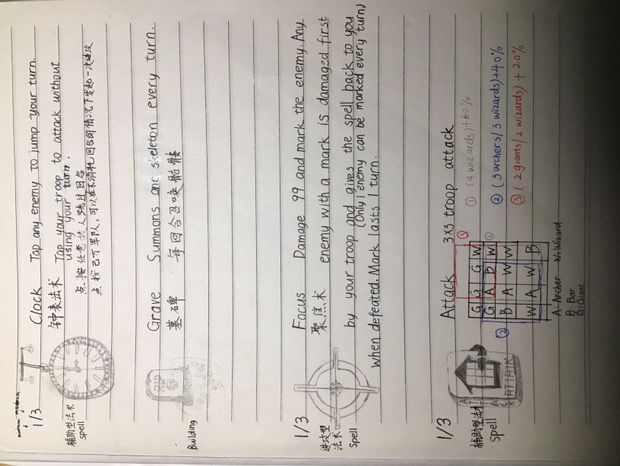 1/3
Clock Tap any enemy to jump your turn.
钟表法术 Tap your troop to attack without
using your turn.
点按任意敌人跳过回合
点按己方军队,可以在不消耗回合的情况下发起一次进攻
辅助型法术
spell
Grave Summons one skeleton every turn.
墓碑 每回合召唤骷髅
Building
1/3
Focus Damage 99 and mark the enemy. Any
聚焦术 enemy with a mark is damaged first
by your troop and gives the spell back to you
(Only 1 enemy can be marked every turn)
when defeated. Mark lasts 1 turn.
进攻型
法术
spell
1/3
Attack 3x3 troop attack
① (4 wizards) +60%
② (3 archers / 3 wizards) +40%
③ (2 giants / 2 wizards) + 20%
G G G W
G A B W
B A W W
W A W B
A-Archer W-Wizard
B-Bar
G-Giant
ATTACK
辅助型法术
spell